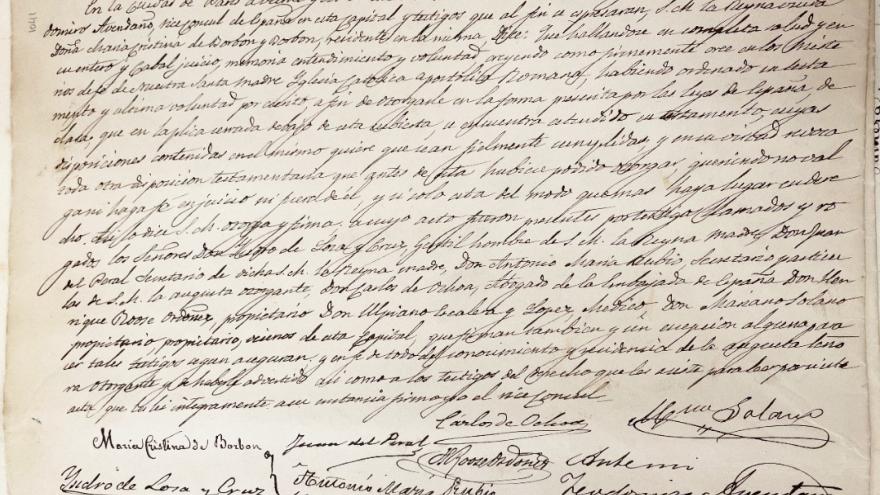 En la Ciudad de
domiro Avendaño, vice Consul de España en esta Capital y testigos que al fin se espresaran, S.M. la Reyna viuda
Doña Maria Cristina de Borbon y Borbon, residente en la misma Dijo: que hallandose en completa salud y en
su entero y Cabal juicio, memoria entendimiento y voluntad, creyendo como firmemente cree en los Miste
rios de fé de Nuestra Santa Madre Yglesia Catolica apostolica Romana, habiendo ordenado su testa
mento y ultima voluntad por escrito, a fin de otorgarle en la forma prescrita por las leyes de España, de
clara, que en la plica cerrada debajo de esta cubierta se encuentra estendido su testamento, cuyas
disposiciones contenidas en el mismo quiere que sean fielmente cumplidas, y en su virtud revoca
toda otra disposicion testamentaria que antes de esta hubiere podido otorgar queriendo no val
ga ni haga fé en juicio ni fuera de él, y si solo esta del modo que mas haya lugar en dere
cho. Asi lo dice S.M. otorga y firma, a cuyo acto fueron presentes por testigos llamados y ro
gados los Señores Don Ysidro de Losa y Cruz, Gentil hombre de S.M. la Reyna Madre, Don Juan
del Peral Secretario de dicha S.M. la Reyna madre, Don Antonio Maria Rubio, Secretario particu
lar de S.M. la augusta otorgante, Don Carlos de Ochoa, Abogado de la Embajada de España, Don Hen
rique Roose Ordoñez, propietario, Don Ulpiano Escalera y Lopez, Medico, Don Mariano Solano
propietario propietario, vecinos de esta Capital, que firman tambien y sin excepcion alguna para
ser tales testigos segun aseguran. y en fé de todo del conocimiento y residencia de la augusta Seño
ra Otorgante y de haberle advertido asi como a los testigos del derecho que les asiste para leer por si este
acta que lei integramente a su instancia firmo yo el vice Consul
Carlos de Ochoa Solano
Maria Cristina de Borbon Juan del Peral
HRoose Ordoñez Antemi
Ysidro de Losa y Cruz Antonio Maria Rubio Teodomiro